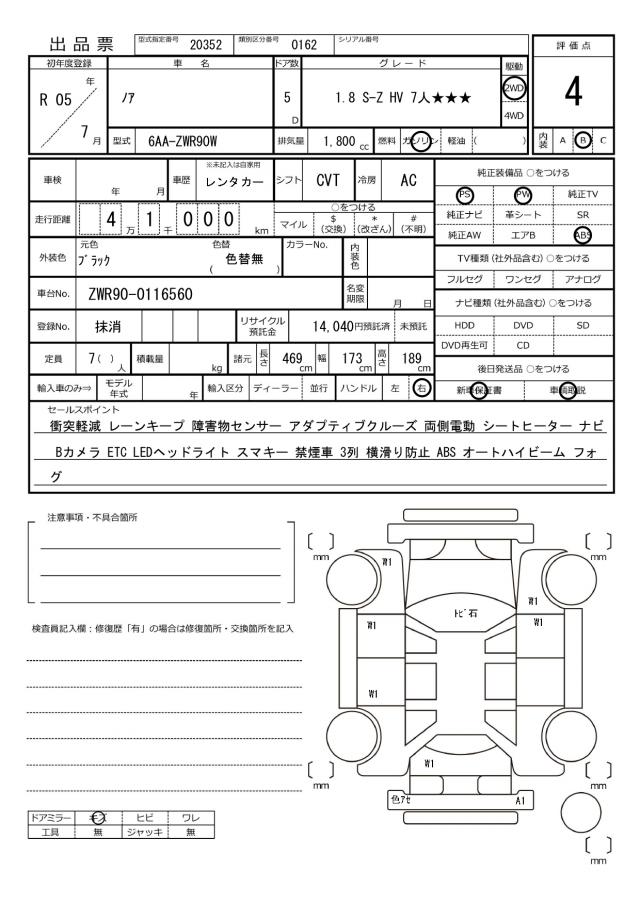 出品票 型式指定番号 20352 類別区分番号 0162 シリアル番号
評価点
4
初年度登録 車名 ドア数 グレード 駆動
R 05 年 7 月 ノア 5 D 1.8 S-Z HV 7人★★★ 2WD 4WD
型式 6AA-ZWR90W 排気量 1,800 cc 燃料 ガソリン 軽油 ( )
内装 A B C
車検 年 月 車歴 ※未記入は自家用 レンタカー シフト CVT 冷房 AC
走行距離 4 万 1 千 0 0 0 km ○をつける マイル $(交換) *(改ざん) #(不明)
外装色 元色 ブラック 色替 ( 色替無 ) カラーNo. 内装色
車台No. ZWR90-0116560 名変期限 月 日
登録No. 抹消 リサイクル預託金 14,040円預託済 未預託
定員 7( ) 人 積載量 kg 諸元 長さ 469 cm 幅 173 cm 高さ 189 cm
輸入車のみ⇒ モデル年式 年 輸入区分 ディーラー 並行 ハンドル 左 右
純正装備品 ○をつける
PS PW 純正TV
純正ナビ 革シート SR
純正AW エアB ABS
TV種類(社外品含む)○をつける
フルセグ ワンセグ アナログ
ナビ種類(社外品含む)○をつける
HDD DVD SD
DVD再生可 CD
後日発送品 ○をつける
新車保証書 車輌取説
セールスポイント
衝突軽減 レーンキープ 障害物センサー アダプティブクルーズ 両側電動 シートヒーター ナビ
Bカメラ ETC LEDヘッドライト スマキー 禁煙車 3列 横滑り防止 ABS オートハイビーム フォ
グ
注意事項・不具合箇所
検査員記入欄：修復歴「有」の場合は修復箇所・交換箇所を記入
ドアミラー キズ ヒビ ワレ
工具 無 ジャッキ 無
mm
mm
W1
W1
トビ石
W1
W1
W1
W1
mm
mm
色アセ
A1
mm